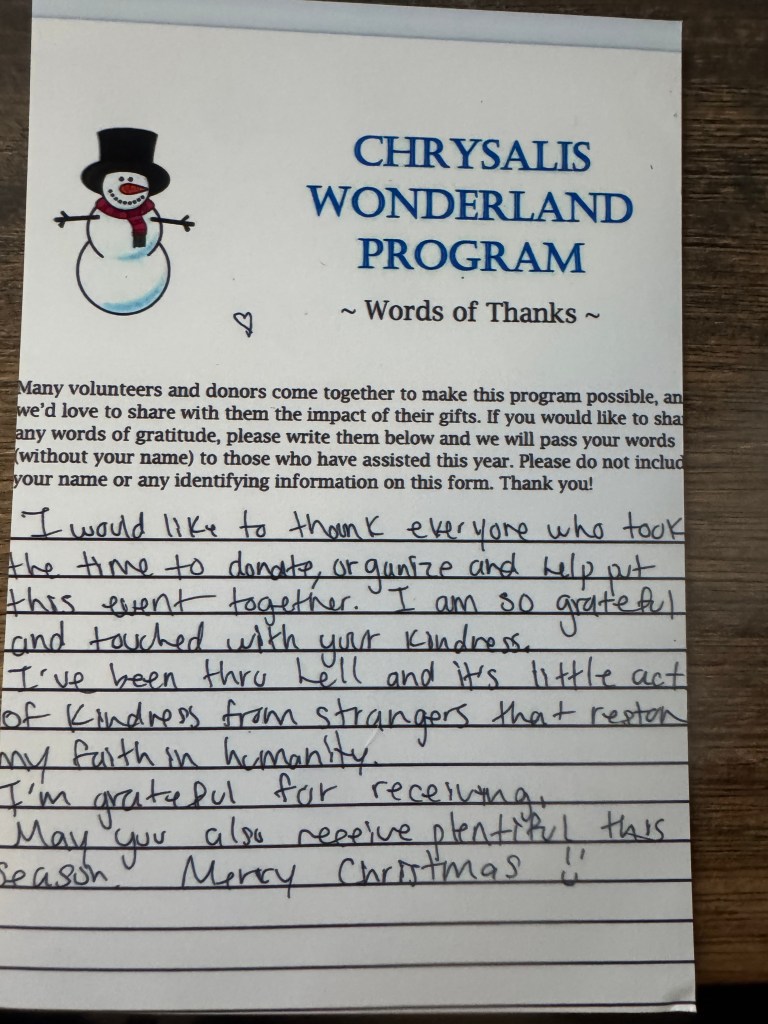 CHRYSALIS
WONDERLAND
PROGRAM
~ Words of Thanks ~
Many volunteers and donors come together to make this program possible, an
we'd love to share with them the impact of their gifts. If you would like to sha
any words of gratitude, please write them below and we will pass your words
(without your name) to those who have assisted this year. Please do not includ
your name or any identifying information on this form. Thank you!
I would like to thank everyone who took
the time to donate, organize and help put
this event together. I am so grateful
and touched with your kindness.
I've been thru hell and it's little act
of kindness from strangers that restor
my faith in humanity.
I'm grateful for receiving.
May you also receive plentiful this
season. Merry Christmas